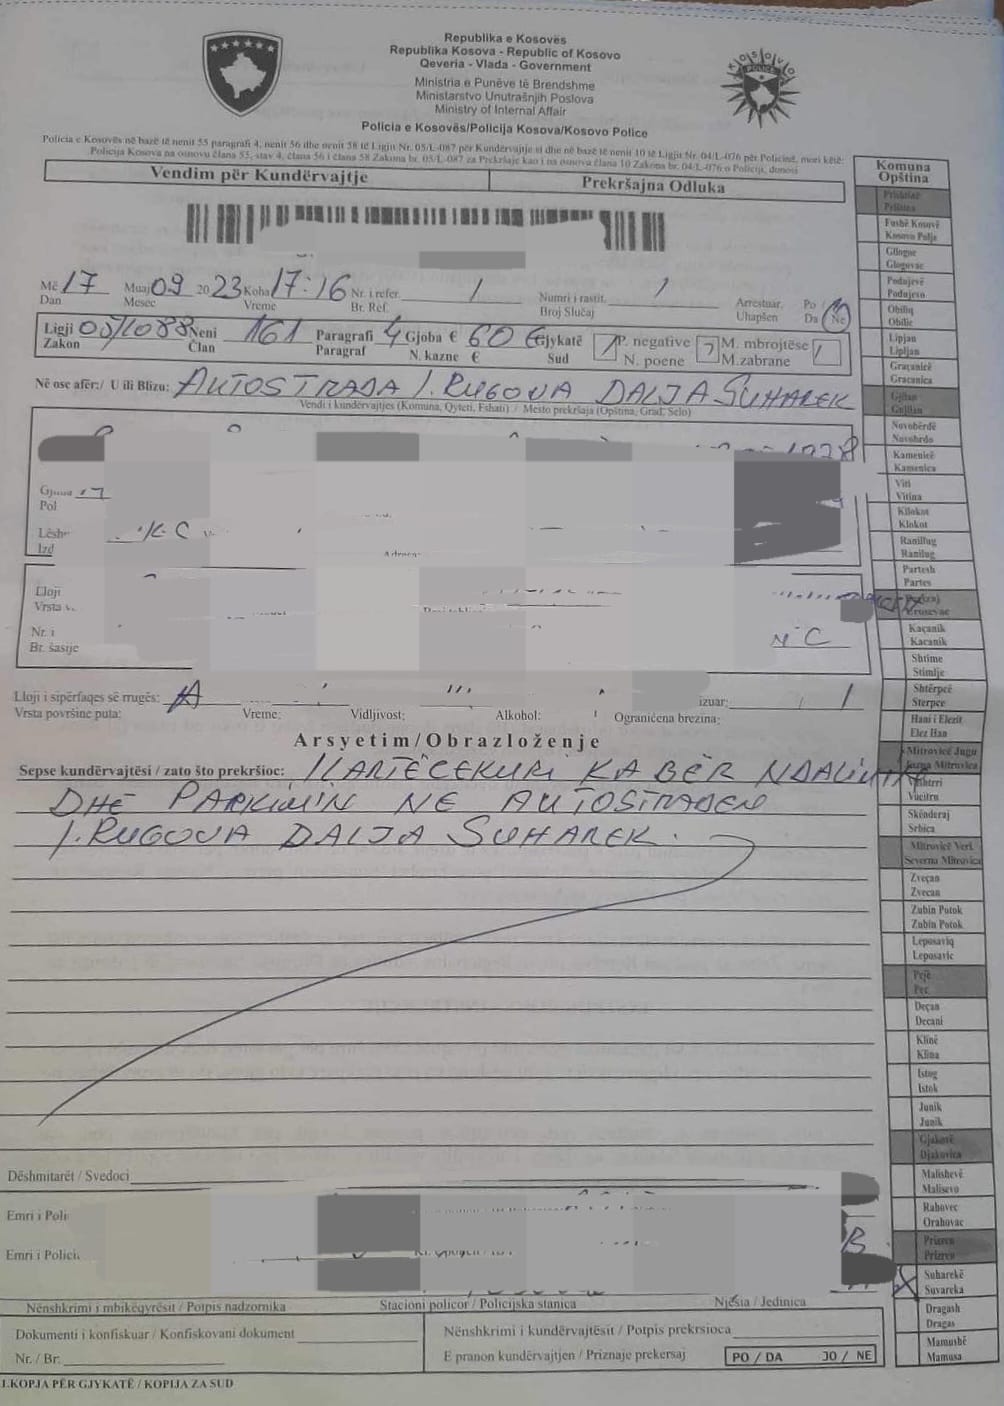 Republika e Kosovës
Republika Kosova - Republic of Kosovo
Qeveria - Vlada - Government
Ministria e Punëve të Brendshme
Ministarstvo Unutrašnjih Poslova
Ministry of Internal Affair
Policia e Kosovës/Policija Kosova/Kosovo Police
KOSOVO
POLICE
Policia e Kosovës në bazë të nenit 55 paragrafi 4, nenit 56 dhe nenit 58 të Ligjit Nr. 05/L-087 për Kundërvajtje si dhe në bazë të nenit 10 të Ligjit Nr. 04/L-076 për Policinë, mori këtë:
Policija Kosova na osnovu člana 55, stav 4, člana 56 i člana 58 Zakona br. 05/L-087 za Prekršaje kao i na osnovu člana 10 Zakona br. 04/L-076 o Policiji, donosi
Vendim për Kundërvajtje Prekršajna Odluka
Më 17 Muaj 09 2023 Koha 17:16 Nr. i refer. / Numri i rastit. / Arrestuar. Po / Jo
Dan Mesec Vreme Br. Ref. Broj Slučaj Uhapšen Da / Ne
Ligji 05/088 Neni 161 Paragrafi 4 Gjoba € 60 € Gjykatë / P. negative / M. mbrojtëse /
Zakon Član Paragraf N. kazne € Sud N. poene M.zabrane
Në ose afër:/ U ili Blizu: AUTOSTRADA I. RUGOVA DALJA SUHAREK
Vendi i kundërvajtjes (Komuna, Qyteti, Fshati) / Mesto prekršaja (Opština, Grad, Selo)
Pol
Izd
Lloji
Vrsta
Nr. i
Br. šasije
Lloji i sipërfaqes së rrugës: A
izuar: /
Vrsta površine puta: Vreme: Vidljivost: Alkohol: Ograničena brezina:
Arsyetim/Obrazloženje
Sepse kundërvajtësi / zato što prekršioc: I LARTËCEKURI KA BËR NDALIMIN
DHË PARKIMIN NE AUTOSTRADEN
I. RUGOVA DALJA SUHAREK.
Dëshmitarët / Svedoci
Emri i Poli
Emri i Polici
Nënshkrimi i mbikëqyrësit / Potpis nadzornika Stacioni policor / Policijska stanica Njësia / Jedinica
Dokumenti i konfiskuar / Konfiskovani dokument
Nr. / Br.
Nënshkrimi i kundërvajtësit / Potpis prekrsioca
E pranon kundërvajtjen / Priznaje prekersaj PO / DA JO / NE
I.KOPJA PËR GJYKATË / KOPIJA ZA SUD
Komuna
Opština
Prishtinë
Priština
Fushë Kosovë
Kosovo Polje
Gllogoc
Glogovac
Podujevë
Podujevo
Obiliq
Obilic
Lipjan
Lipljan
Graçanicë
Gracanica
Gjilan
Gnjilan
Novobërdë
Novobrdo
Kamenicë
Kamenica
Viti
Vitina
Kllokot
Klokot
Ranillug
Ranilug
Partesh
Partes
Kaçanik
Kacanik
Shtime
Stimlje
Shtërpcë
Sterpce
Hani i Elezit
Elez Han
Mitrovicë Jugu
Juzna Mitrovica
Vushtrri
Vucitrn
Skënderaj
Srbica
Mitrovicë Veri.
Severna Mitrovica
Zveçan
Zvecan
Zubin Potok
Zubin Potok
Leposaviq
Leposavic
Pejë
Pec
Deçan
Decani
Klinë
Klina
Istog
Istok
Junik
Junik
Gjakovë
Djakovica
Malishevë
Malisevo
Rahovec
Orahovac
Prizren
Prizren
Suharekë
Suvareka
Dragash
Dragas
Mamushë
Mamusa